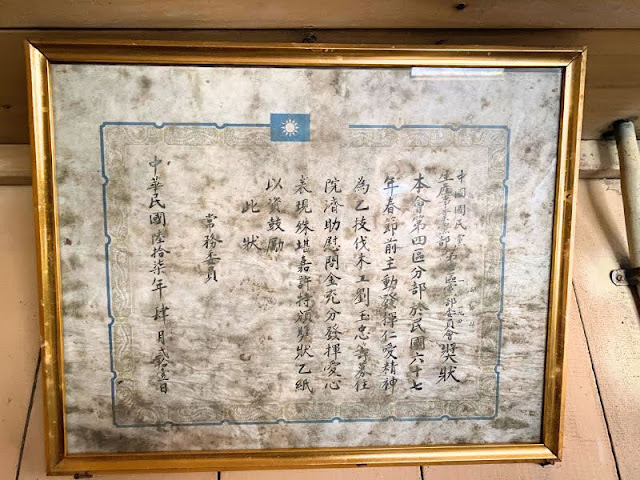 中國國民黨
生產事業黨部第區黨部委員會獎狀
本會第四區分部於民國六十七
年春節前主動發揮仁愛精神
為乙技伐木工劉玉忠籌募住
院濟助慰問金充分發揮愛心
表現殊堪嘉許特頒獎狀乙紙
以資鼓勵
此狀
常務委員
中華民國陸拾柒年肆月貳壹日